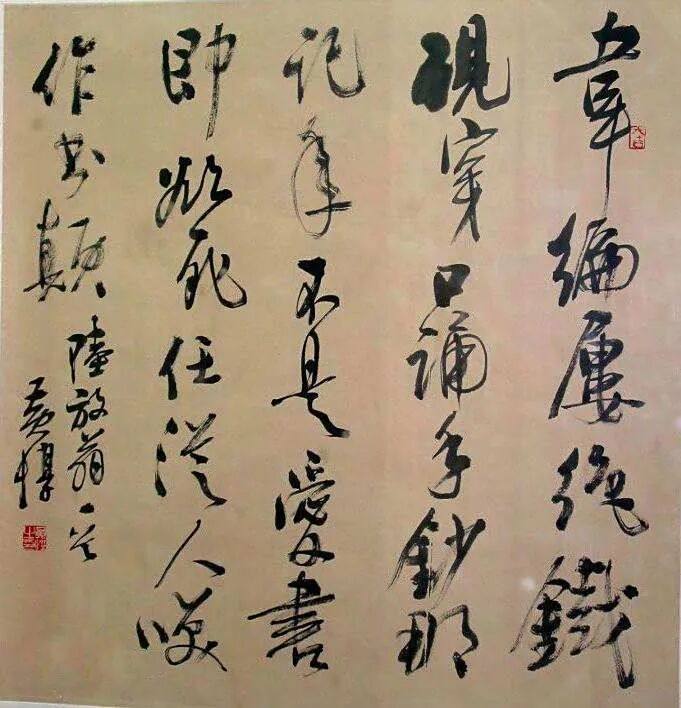 韋編屢絶鐵
硯穿口誦手鈔那
記年不是愛書
即欲死任從人咲
作書顛 陸放翁一首
黄惇